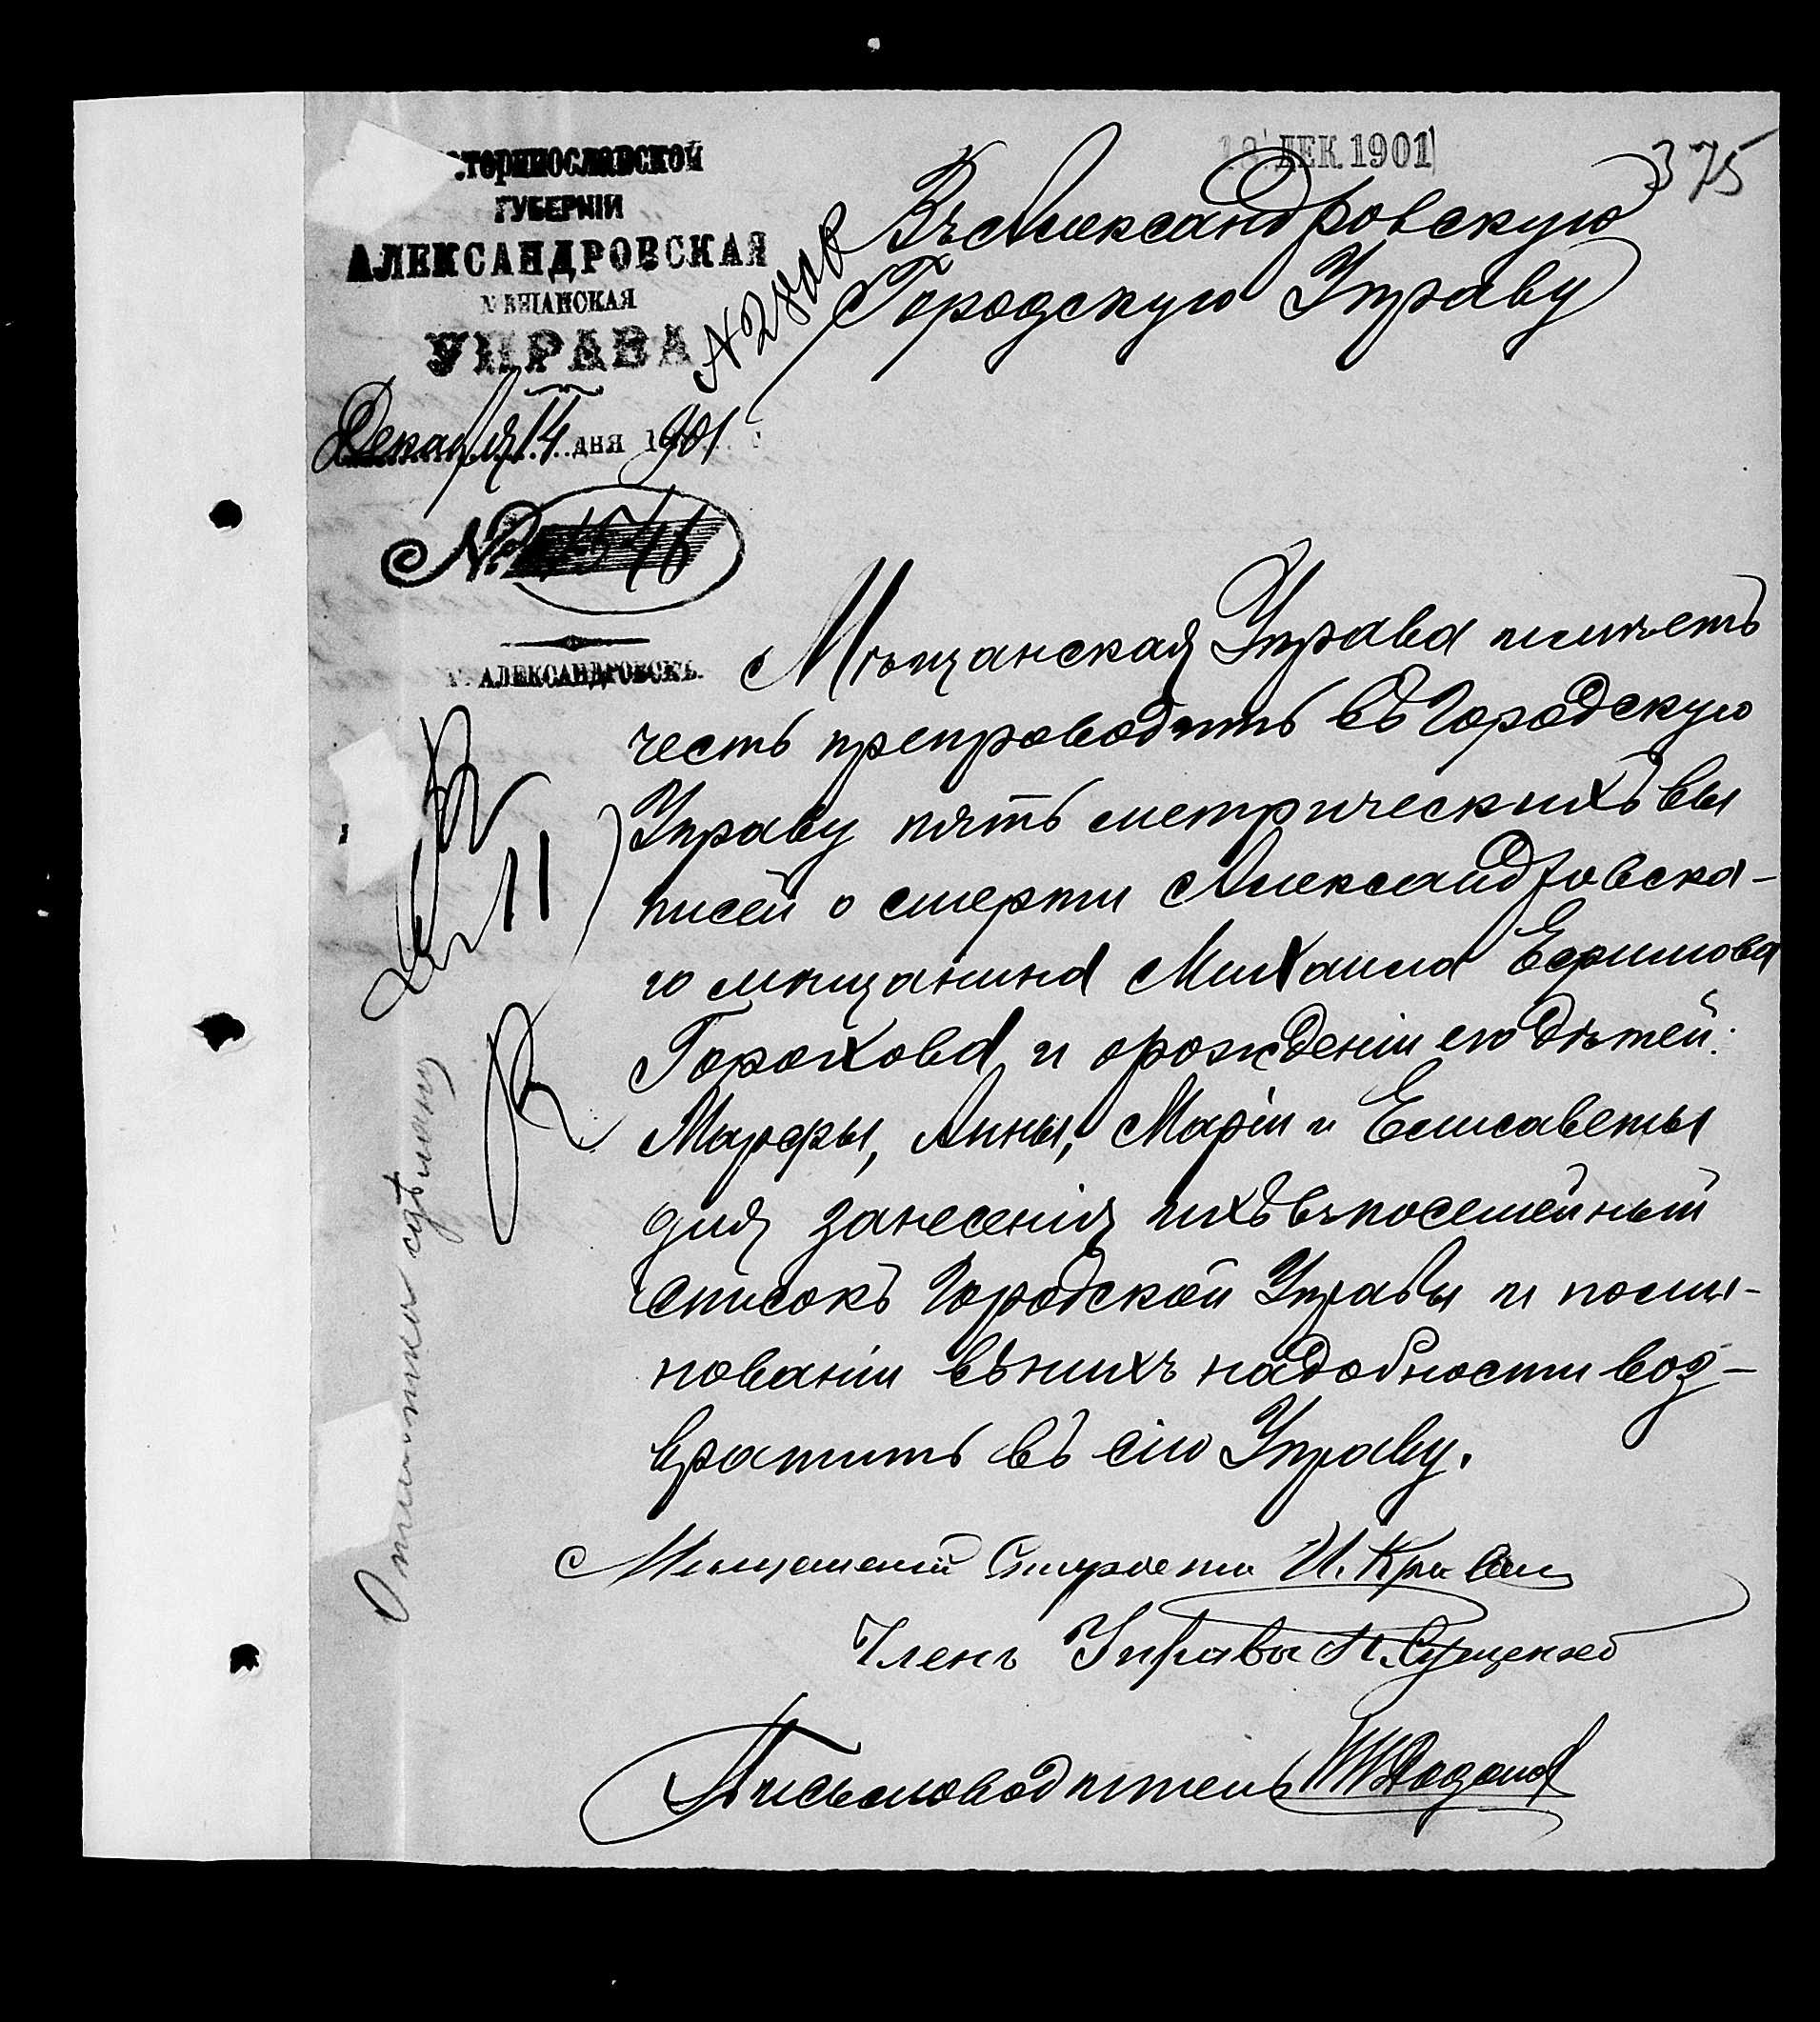 18 ДЕК. 1901
375
ЕКАТЕРИНОСЛАВСКОЙ
ГУБЕРНІИ
АЛЕКСАНДРОВСКАЯ
МѢЩАНСКАЯ
УПРАВА
Декабря 14 дня 1901
№ 1546
Г. АЛЕКСАНДРОВСКЪ.
Въ Александровскую
Городскую Управу
Мѣщанская Управа имѣетъ
честь препроводить въ Городскую
Управу пять метрическихъ вы
писей о смерти Александровска-
го мѣщанина Михаила Ефимова
Горохова и о рожденіи его дѣтей:
Марфы, Анны, Маріи и Елисаветы
для занесенія ихъ въ посемейный
списокъ Городской Управы и поми-
нованіи въ нихъ надобности воз-
вратить въ сію Управу.
Мѣщанскій Староста И.
Членъ Управы
Письмоводитель
Отмѣтка сдѣлана